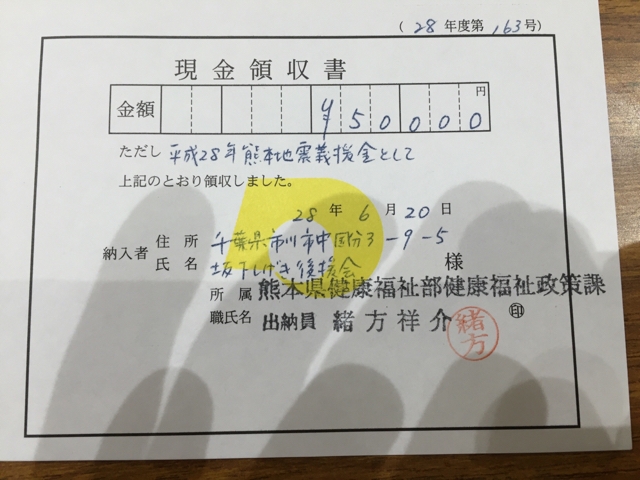 (28年度第163号)
現金領収書
金額 ¥50000 円
ただし 平成28年熊本地震義援金として
上記のとおり領収しました。
28年6月20日
納入者 住所 千葉県市川市中国分3-9-5
氏名 坂下しげき後援会 様
所属 熊本県健康福祉部健康福祉政策課
職氏名 出納員 緒方祥介 ㊞
緒方